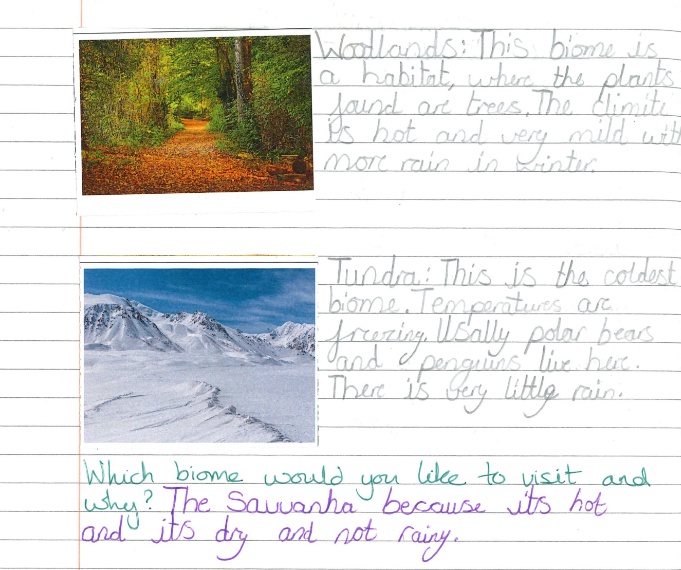 Woodlands: This biome is
a habitat, where the plants
found are trees. The climite
is hot and very mild with
more rain in winter.
Tundra: This is the coldest
biome. Temperatures are
freezing. Usally polar bears
and penguins live here.
There is very little rain.
Which biome would you like to visit and
why? The Savvanha because its hot
and its dry and not rainy.